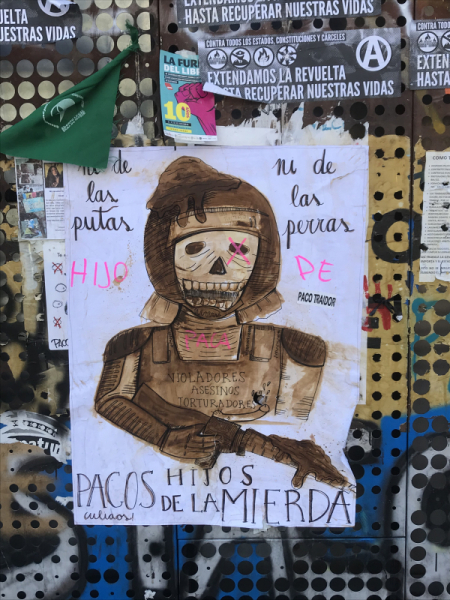 EXTENDAMOS LA REVUELTA
HASTA RECUPERAR NUESTRAS VIDAS
HASTA RECUPERAR NUESTRAS VIDAS
CONTRA TODOS LOS ESTADOS, CONSTITUCIONES Y CÁRCELES
EXTENDAMOS LA REVUELTA
HASTA RECUPERAR NUESTRAS VIDAS
CONTRA TODOS
EXTENDAM
HASTA
LA FUR
DEL LIBR
10
ni de
las
putas
ni de
las
perras
HIJO
DE
PACO TRAIDOR
PACA
VIOLADORES
ASESINOS
TORTURADORES
PACOS HIJOS
DE LA MIERDA
culiaos!